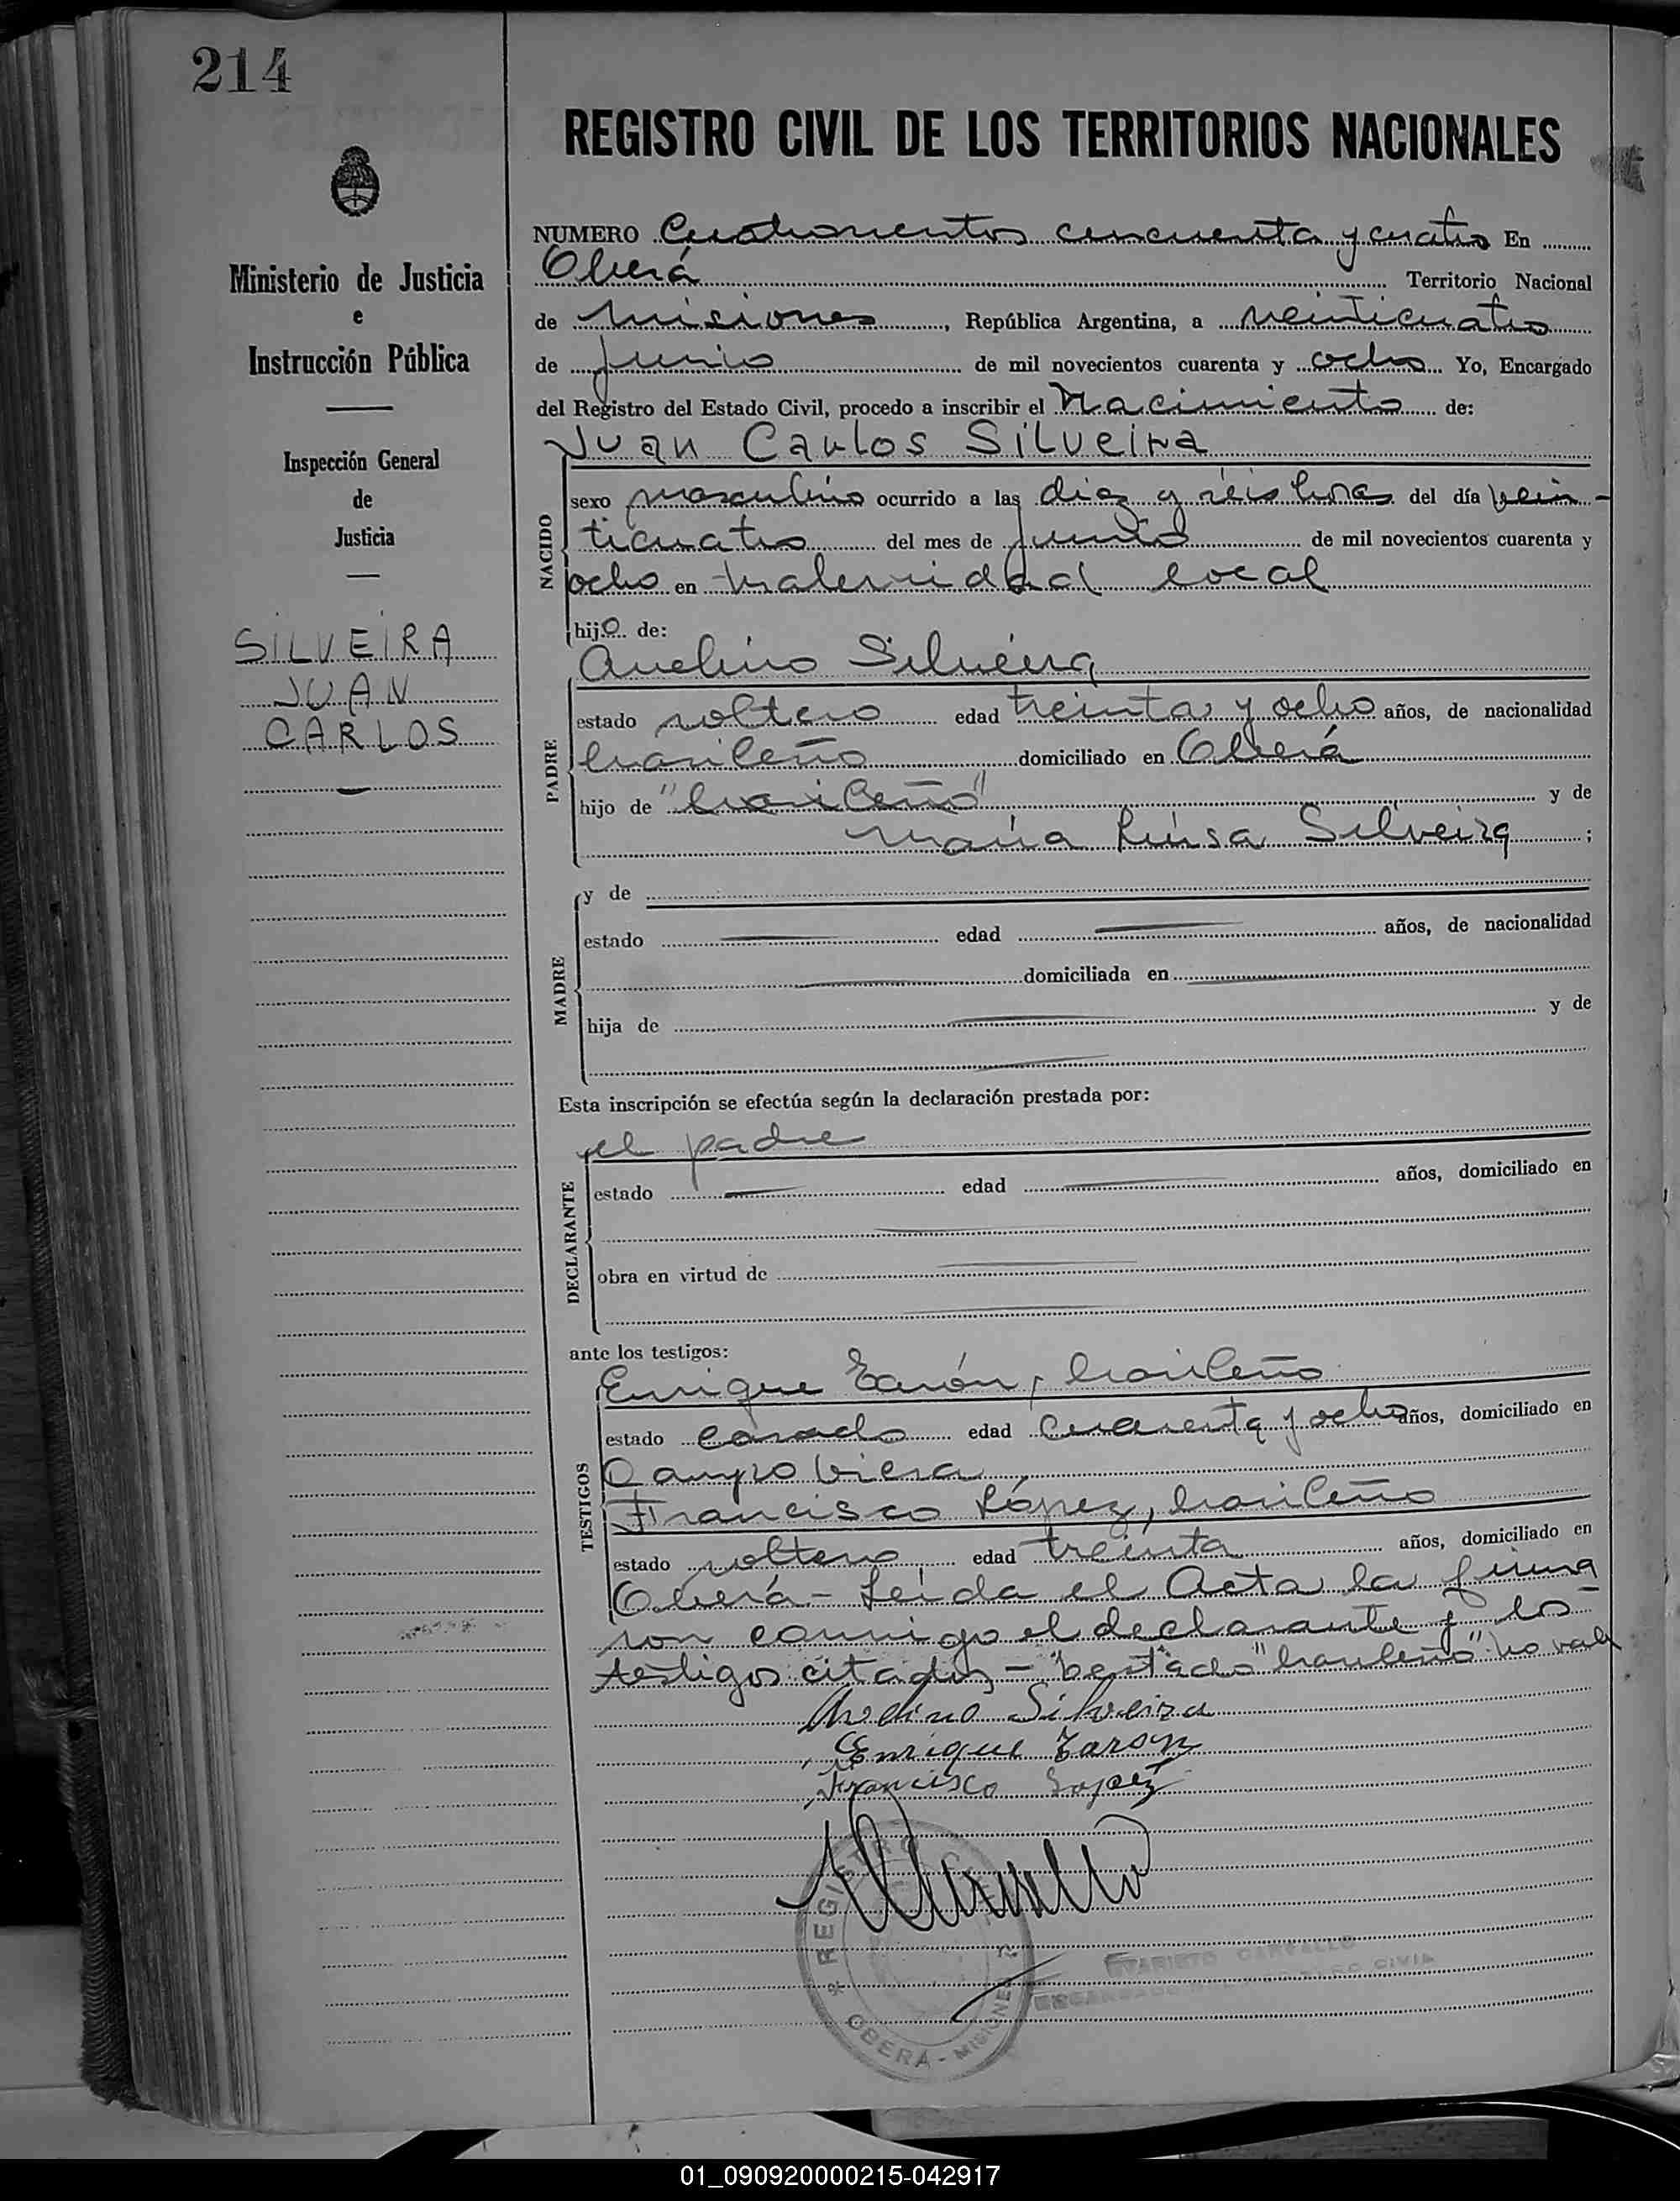 214
REGISTRO CIVIL DE LOS TERRITORIOS NACIONALES
Ministerio de Justicia
e
Instrucción Pública
Inspección General
de
Justicia
SILVEIRA
JUAN
CARLOS
NUMERO Cuatrocientos cincuenta y cuatro En
Oberá Territorio Nacional
de Misiones, República Argentina, a veinticuatro
de junio de mil novecientos cuarenta y ocho Yo, Encargado
del Registro del Estado Civil, procedo a inscribir el Nacimiento de:
Juan Carlos Silveira
NACIDO
sexo masculino ocurrido a las diez y seis horas del día vein-
ticuatro del mes de junio de mil novecientos cuarenta y
ocho en Maternidad local
hijo de:
Avelino Silveira
PADRE
estado soltero edad treinta y ocho años, de nacionalidad
brasileño domiciliado en Oberá
hijo de "brasileño" y de
María Luisa Silveira ;
MADRE
y de
estado edad años, de nacionalidad
domiciliada en
hija de y de
Esta inscripción se efectúa según la declaración prestada por:
el padre
DECLARANTE
estado edad años, domiciliado en
obra en virtud de
ante los testigos:
Enrique Zarón, brasileño
TESTIGOS
estado casado edad cuarenta y ocho años, domiciliado en
Campo Viera,
Francisco López, brasileño
estado soltero edad treinta años, domiciliado en
Oberá - Leída el Acta la firma
ron conmigo el declarante y los
testigos citados - "brasileño" no vale
Avelino Silveira
Enrique Zaron
Francisco Lopez
REGISTRO
OBERÁ - MISIONES
EVARISTO CARVALLO
01_090920000215-042917